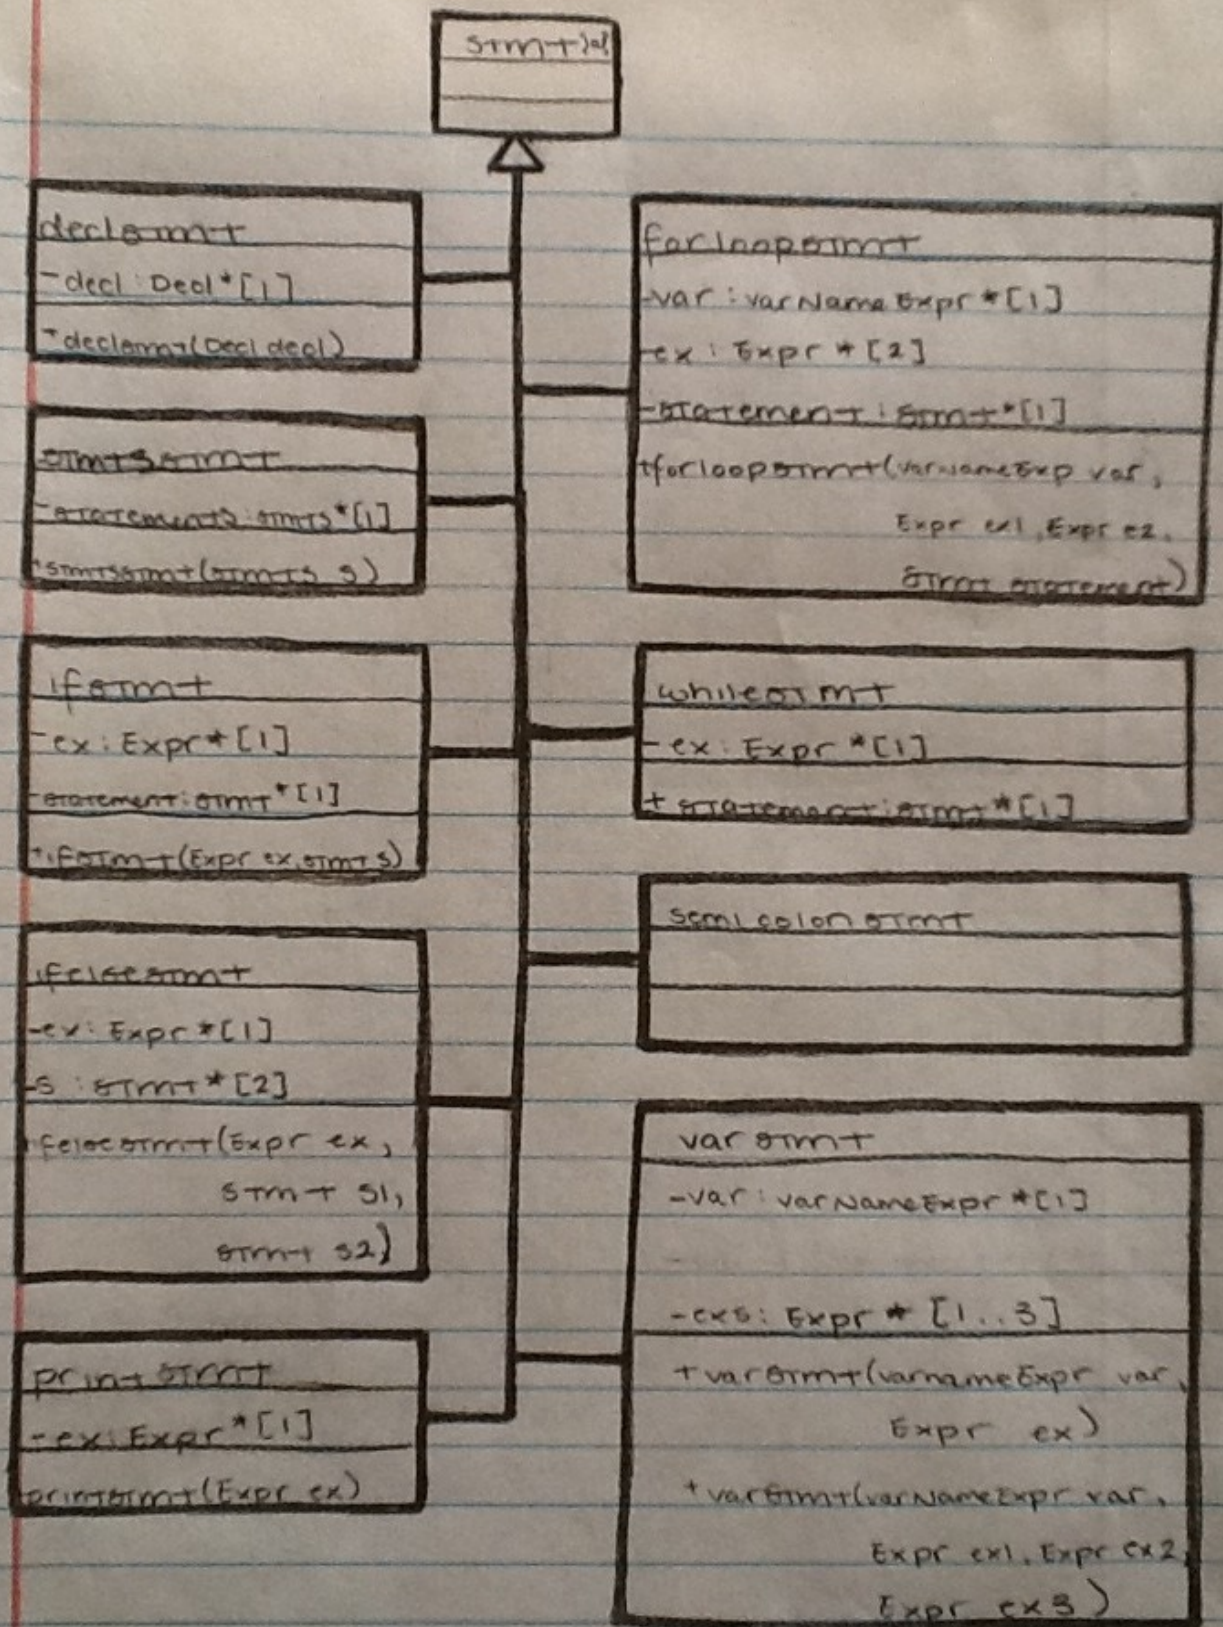 stmt
declstmt
-decl: Decl*[1]
+declstmt(Decl decl)
stmtsstmt
-statements: stmts*[1]
+stmtsstmt(stmts s)
ifstmt
-ex: Expr*[1]
-statement: stmt*[1]
+ifstmt(Expr ex, stmt s)
ifelsestmt
-ex: Expr*[1]
-s: stmt*[2]
ifelsestmt(Expr ex,
stmt s1,
stmt s2)
printstmt
-ex: Expr*[1]
printstmt(Expr ex)
forloopstmt
-var: varNameExpr*[1]
-ex: Expr*[2]
-statement: stmt*[1]
+forloopstmt(varNameExp var,
Expr ex1, Expr e2,
stmt statement)
whilestmt
-ex: Expr*[1]
+statement: stmt*[1]
semicolonstmt
varstmt
-var: varNameExpr*[1]
-exs: Expr*[1..3]
+varstmt(varnameExpr var,
Expr ex)
+varstmt(varNameExpr var,
Expr ex1, Expr ex2,
Expr ex3)